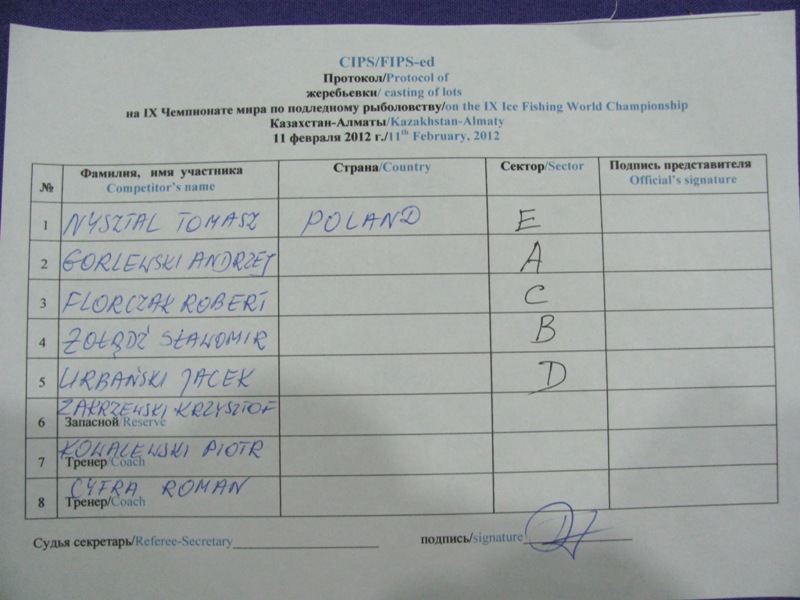 CIPS/FIPS-ed
Протокол/Protocol of
жеребьевки/ casting of lots
на IX Чемпионате мира по подледному рыболовству/on the IX Ice Fishing World Championship
Казахстан-Алматы/Kazakhstan-Almaty
11 февраля 2012 г./11th February, 2012
№ Фамилия, имя участника Страна/Country Сектор/Sector Подпись представителя
Competitor's name Official's signature
1 NYSZTAL TOMASZ POLAND E
2 GORLEWSKI ANDRZEJ A
3 FLORCZAK ROBERT C
4 ŻOŁĄDŹ SŁAWOMIR B
5 URBAŃSKI JACEK D
ZAKRZEWSKI KRZYSZTOF
6 Запасной/Reserve
KOWALEWSKI PIOTR
7 Тренер/Coach
CYFRA ROMAN
8 Тренер/Coach
Судья секретарь/Referee-Secretary подпись/signature